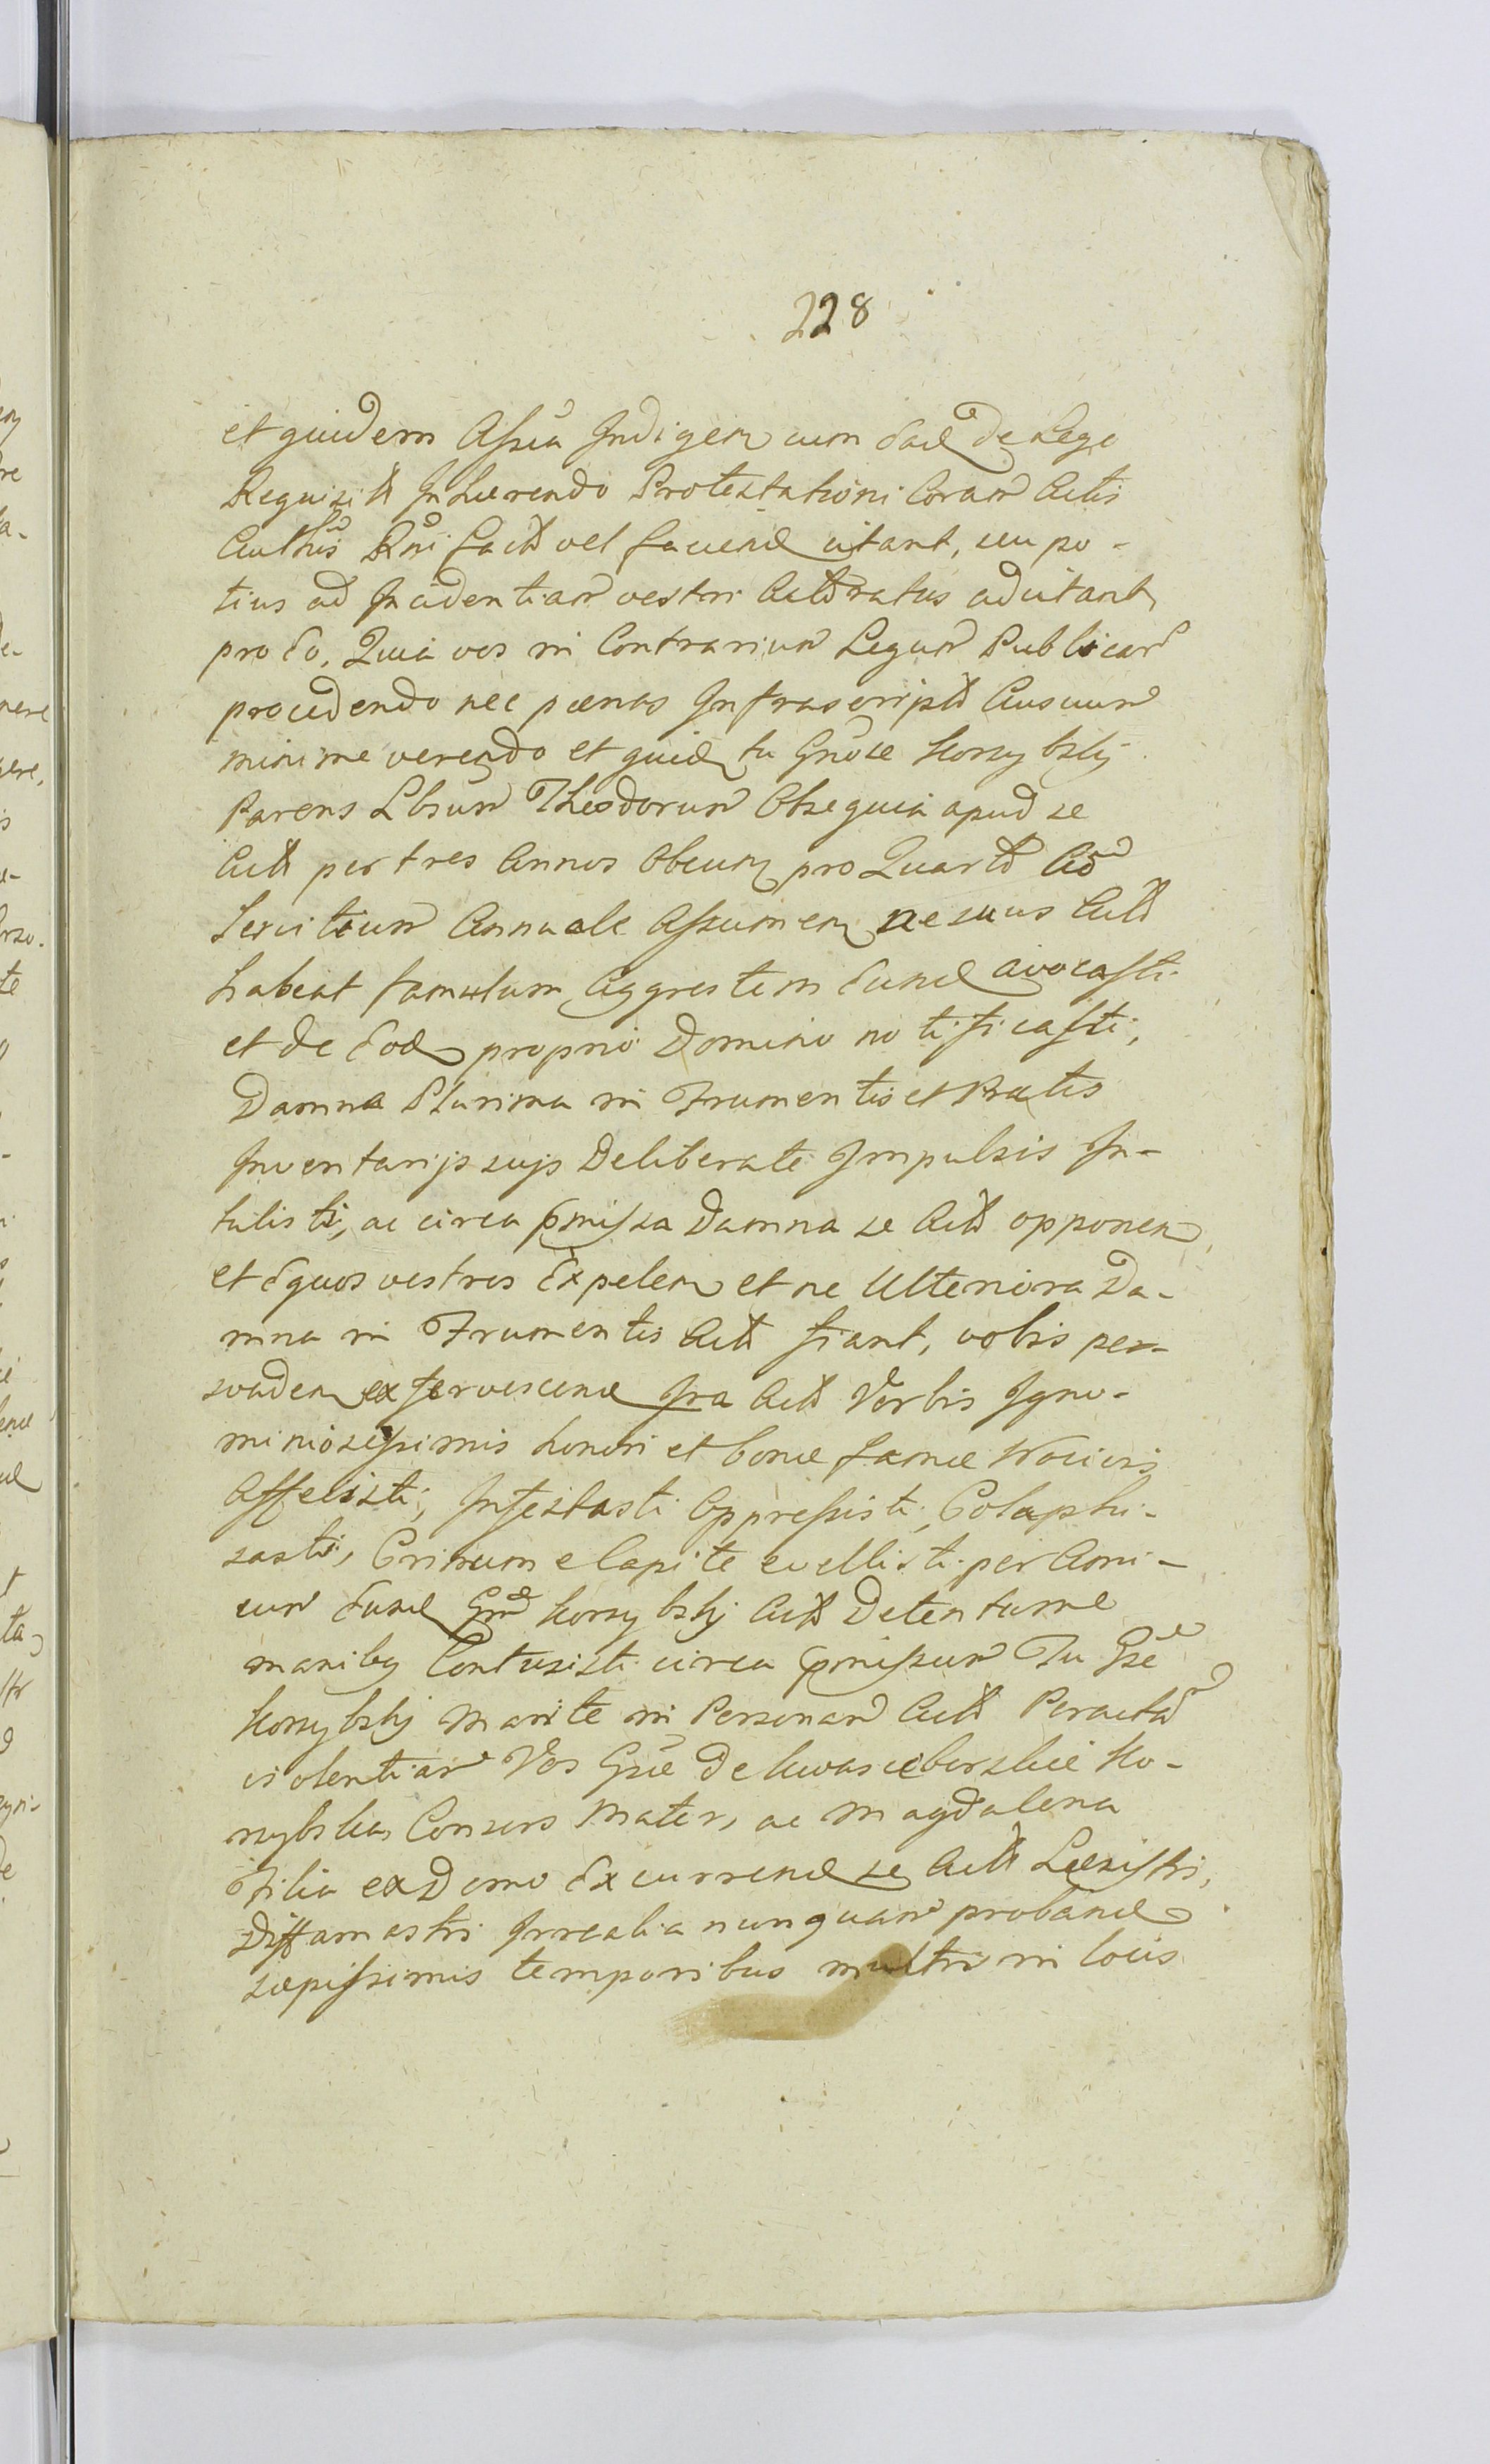 228
et quidem Assñia Indigen cum Ead de Lege
Requisit Inhærendo Protestationi Coram Actis
Authis Rñi fact vel faciend citant, seu po-
tius ad Incidentiam vestri Actoratus adcitant
pro Eo, Quia vos in Contrarium Legum Publicar
procedendo nec pœnas Infrascript Ausuum
minime verendo et quid tu Gñose Korzybski
Parens Lbsum Theodorum Obsequia apud se
Act per tres Annos Obeun pro Quarto Ad
Servitium Annuale Assumen ne suus Act
habeat famulum Aggrestem Eund avocasti
et de Eod proprio Domino notificasti,
Damna Plurima in Frumentis et Pratis
Inventarijs sujs Deliberate Impulsis In-
tulisti, ac circa pmissa Damna se Act opponen
et Equos vestros Expelen et ne Ulteriora Da-
mna in Frumentis Act fiant, vobis per-
svaden exfervescend Ira Act Verbis Igno-
miniosissimis honori et bonæ famæ Nocivis
Affecisti, Infestasti Oppressisti, Colaphi-
sasti, Crinum e Capite evellisti per Ami-
cum Eund Gm Korzybski Act Detentum
manibq Contusisti circa pmissam Tu Gse
Korzybski Marite in Personam Act Peractam
violentiam Vos Gsæ De Kwascieborskie Ko-
rzybska Consors Mater, ac Magdalena
Filia ex Domo Excurrend se Act Læsistis,
Diffamastis Irrealia nunquam proband
sæpissimis temporibus multis in locis